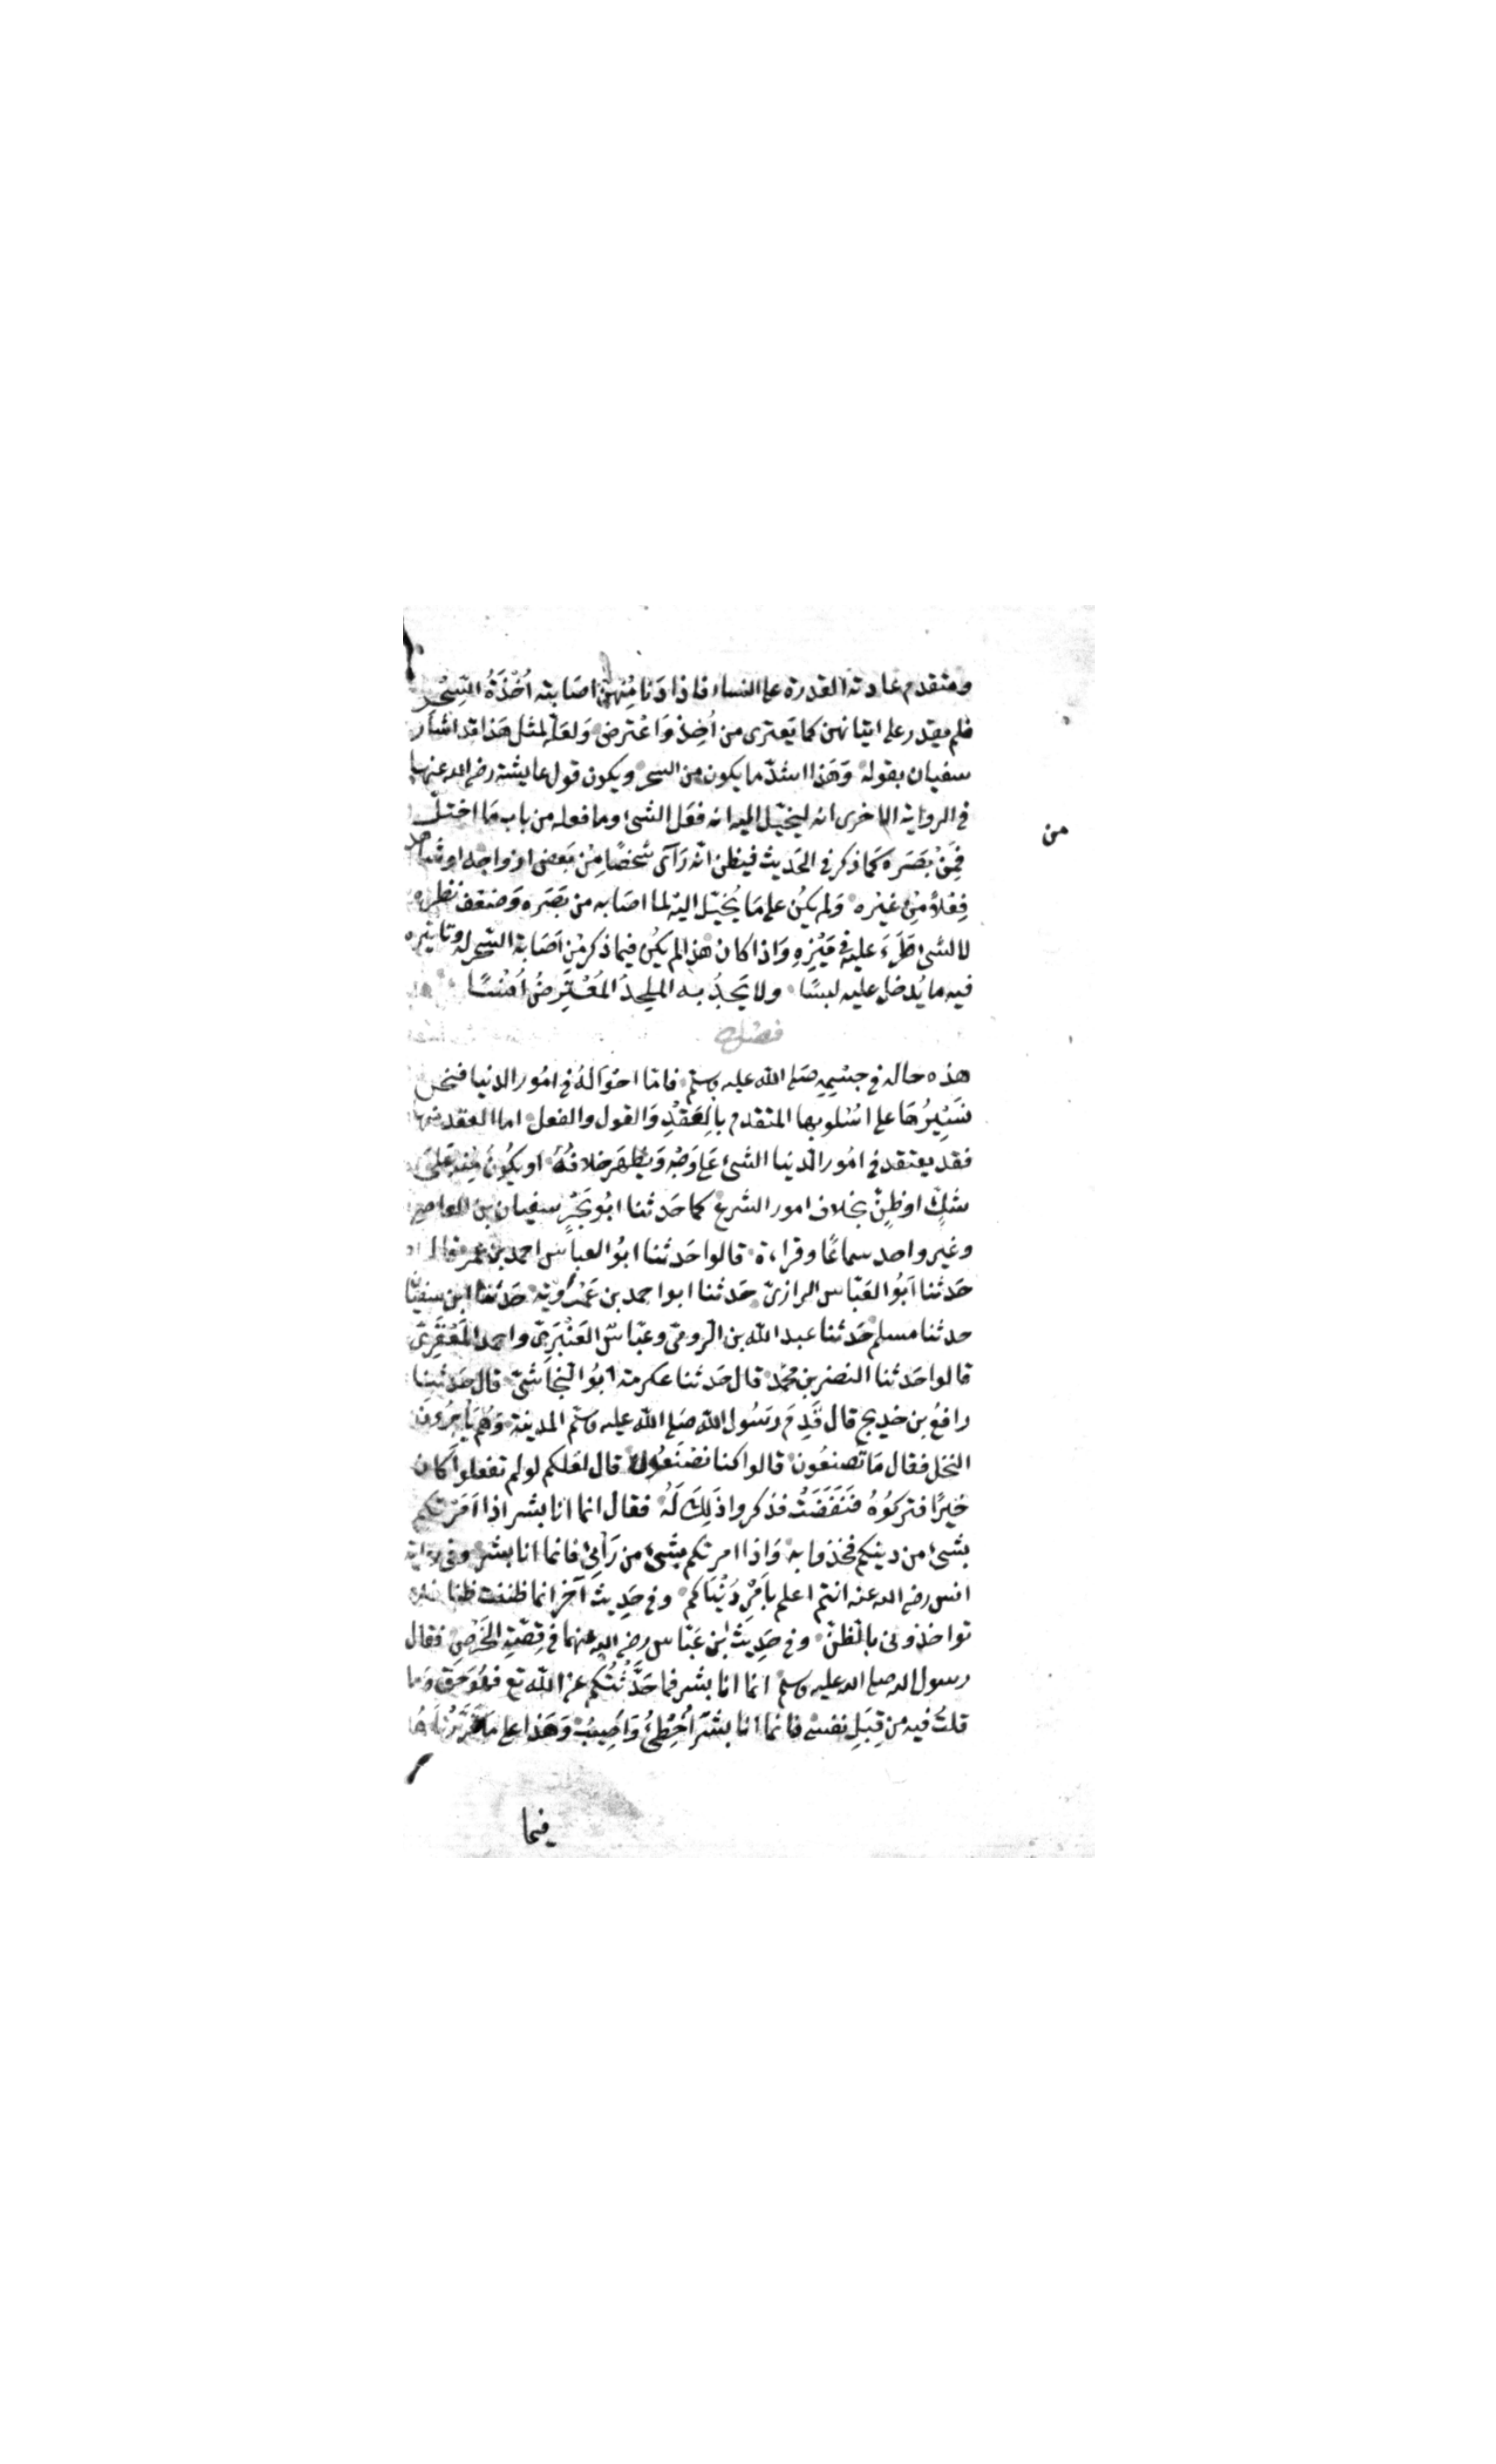 ومتقدم عادته القدرة على النساء فاذا دَنا مِنْهنّ اصَابته اُخْذَةُ السِّحْر
فلم يقدر على اتيانهن كما يَعترى من اُخِذَ وَاعْترض وَلعَلّه لمثل هَذا قد اشار
سفيان بقوله وَهَذا اشدّ ما يكون من السحر ويكون قول عايشة رضى الله عنها
فى الرواية الاخرى انه ليخيّل اليه انه فعَل الشئ وما فعله من باب مَا اختلّ
من
مِنْ بَصَره كَما ذكر فى الحَديث فيظن انّه رَآى شخصًا مِنْ بَعض ازواجه او شاهد
فِعْلاً مِنْ غيْره وَلم يكُن على مَا يُخيّل اليْه لما اصَابه من بَصَره وَضعف نظره
لا لشئ طَرَءَ عليْه فى مَيْزِهِ وَاذا كان هذا لم يكُن فيما ذكر مْن اَصَابة السّحر له وتاثيره
فيه ما يُدخل عليه لبسًا ولا يَجِدُ به الملحدُ المُعْتَرِضُ اُنْسًا
فصْل
هذه حاله فى جسْمِهِ صَلى الله عليه وسلم فامّا احْوَالهُ فى امُور الدنيا فنحن
نَسْبِرُهَا على اسْلوبها المتقدم بالعَقْدِ وَالقول والفعل اما العقد منها
فقد يعتقد فى امُور الدنيا الشئ عَلى وَجْهٍ وَيظهَر خلافُهُ او يكُونُ مِنْه عَلى
شكٍّ او ظنٍّ بخلاف امور الشرع كما حَدثنا ابُو بَحْرٍ سفيان بن العاص
وغير واحد سماعًا وقراءة قالوا حَدثنا ابُو العباس احمد بن عمر قال
حَدثنا اَبُو العَبّاس الرازىّ حَدثنا ابو احمد بن عَمْرُوَيْه حَدثنا ابن سفيان
حدثنا مسلم حَدثنا عبد الله بن الرومىّ وعبّاسٌ العَنْبَرِىّ واحمد المَعْقِرِىّ
قالوا حَدثنا النضر بن مُحمّد قال حَدثنا عكرمة ابُو النّجاشىّ قال حَدثنا
رافعُ بن خديج قال قَدِمَ رسُول الله صَلى الله عليه وسلم المدينة وَهُم يَابِرُونَ
النخل فقال مَا تصنعُون قالوا كنا نصْنَعُه قال لعَلكم لو لم تفعلوا كان
خيرًا فتركوُهُ فنَفَضَتْ فذكروا ذَلِكَ لَهُ فقال انما انا بشر اذا اَمَرْتكم
بشئ من دينكم فخذوا به وَاذا امرتكم بشئ من رَأيى فانما انا بشر وفى رواية
انس رضى الله عنه انتم اعلم باَمْرِ دُنْيَاكم وفى حَدِيث آخر انما ظننت ظنا فلا
تواخذونى بالظنّ وفى حَدِيث ابن عَبّاس رضى الله عنهما فى قِصّةِ الخَرْصِ فقال
رسول الله صلى الله عليه وسلم انما انا بشر فما حَدَّثتُكُم عن الله تع فهُو حَق وَما
قلتُ فيه من قِبَلِ نفسى فانما انا بشَر اُخطِئُ وَاُصِيبُ وَهَذا على مَا قَرّرْنَاهُ
فيما